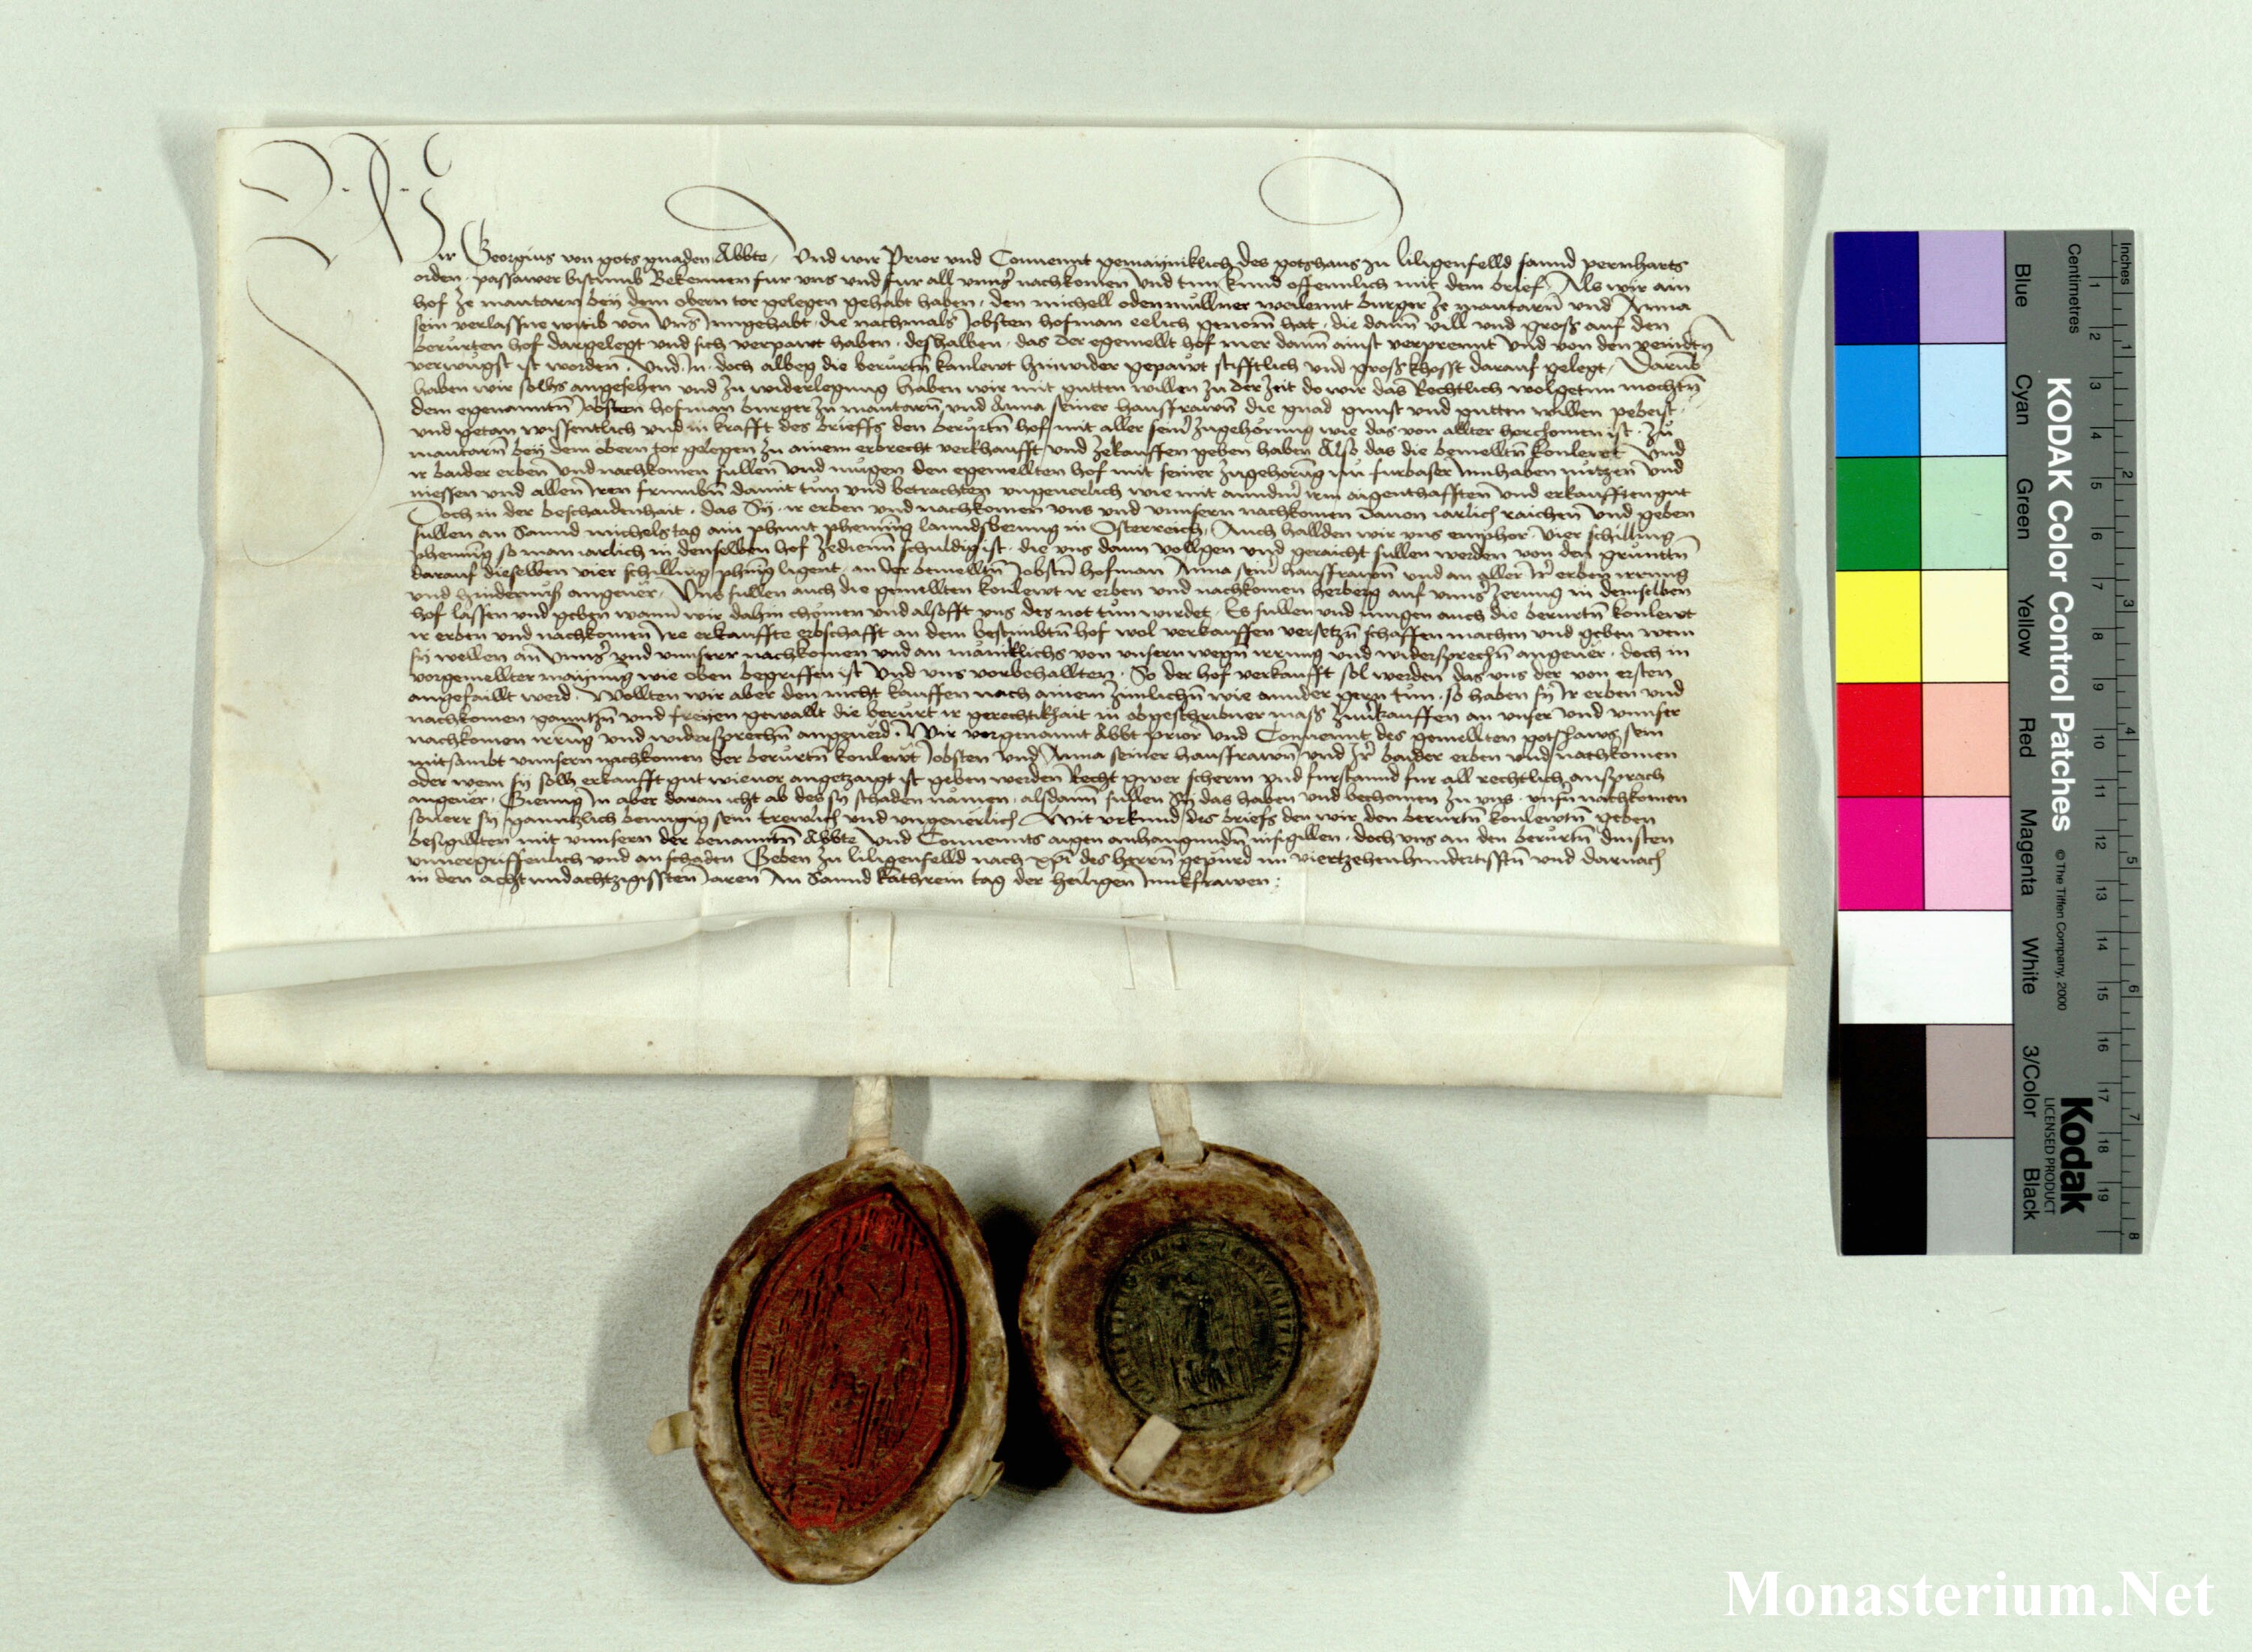 Wir Georgius von gots gnaden Abbte, Vnd wir Prior vnd Conuennt gemayniklich des gotshaus zu liligenfelld sannd pernharts
orden, passawer bistumb Bekennen fur vns vnd fur all vnnser nachkomen vnd tun kund offennlich mit dem brief, Als wir ain
hof ze mautarn bey dem obern tor gelegen gehabt haben, den michell odenmullner weilennt burger ze mautarn vnd Anna
sein verlassne witib von vns Inngehabt, die nachmals Jobsten hofman eelich genom hat, die dann vill vnd gross auf den
berurten hof dargelegt vnd sich verpawt haben, deshalben, das der egemellt hof mer dann ainst verprennt vnd von den veindtn
verwugst ist worden, vnd In doch albeg die berurtn kanlewt hinwider gepawt stifftlich vnd gross khosst darauf gelegt, Darumb
haben wir solhs angesehen vnd zu widerlegung haben wir mit gutten willen zu der zeit do wir das Rechtlich wolgetun mochtn
dem egenanntn Jobsten hofman burger zu mautarn vnd Anna seiner hausfrawn die gnad gunst vnd gutten willen
vnd getan wissentlich vnd in krafft des brieffs den berurtn hof mit aller seiner zugehorung wie das von allter herchomen ist, zu
mautarn bey dem obern tor gelegen zu ainem erbrecht verkhaufft vnd zekauffen geben haben Also das die bemelltn konlewt vnd
ir baider erben vnd nachkomen sullen vnd mugen den egemellten hof mit seiner zugehorung nu furbaser Innhaben nutzen vnd
niessen vnd allen Iren frumbn damit tun vnd betrachten vngeuerlich wie mit anndern irm aigenthafften vnd erkaufften gut
Doch in der beschaidenhait, das Sy, ir erben vnd nachkomen vns vnd vnnsern nachkomen dauon iarlich raichen vnd geben
sullen an Sannd michels tag ain phunt phening lanndswerung in Osterreich, Auch hallden wir vns emphor, vier schilling
phening so man iarlich in denselben hof zedienn schuldig ist, die vns dann vollgen vnd geraicht sullen werden von den gruntn
darauf dieselben vier schilling phenig ligent, an der bemelltn Jobstn hofman Anna seiner hausfrawn vnd an aller Ir erben irrung
vnd hindernuss angeuer, Vns sullen auch die gemellten konlewt ir erben vnd nachkomen herberg auf vnnser zerung in demselben
hof lassen vnd geben wann wir dahin chomen vnd alsofft vns des not tun wirdet, Es sullen vnd mugen auch die berurtn konlewt
ir erben vnd nachkomen Ire erkauffte erbschafft an dem bestimbtn hof wol verkauffen versetzn schaffen machen vnd geben wem
sy wellen an vnnser vnd vnnserr nachkomen vnd an maniklichs von vnsern wegn irrung vnd widersprechn angeuer, doch in
vorgemellter maynung wie oben begriffen ist vnd vns vorbehallten, So der hof verkaufft sol werden das vns der von ersten
angefaillt werd, Wollten wir aber den nicht kauffen nach ainem zimlichn wie annder gern tun, so haben sy Ir erben vnd
nachkomen ganntzn vnd freyen gewallt die berurt ir gerechtikhait in obgeschribner mass zuuerkauffen an vnser vnd vnnser
nachkomen irrung vnd widersprechn angeuerd, Wir vorgenannt Abbt Prior vnd Conuennt des gemellten gotshaws sein
mitsambt vnnsern nachkomen der berurtn konlewt Jobsten vnd Anna seiner hausfrawn vnd Ir baider erben vnd nachkomen
oder wem sy solh erkaufft gut wieuor angetzaigt ist geben werden Recht gwer scherm vnd furstannd fur all rechtlich ansprach
angeuer, Gienng In aber daran icht ab des sy schaden namen, alsdann sullen Sy das haben vnd bechomen zu vns, vnsern nachkomen
souerr sy ganntzlich benugig sein trewlich vnd vngeuerlich, Mit vrkund des briefs den wir den berurtn konlewtn geben
besigillten mit vnnsern der benanntn Abbte vnd Conuennts aigen anhangundn insigillen, doch vns an den berurten dinsten
vnuergriffenlich vnd an schaden Geben zu liligenfelld nach xpi des herrn gepurd im viertzehenhundertissten vnd darnach
in den achtundachtzigissten Jaren An Sannd kathrein tag der heiligen Junkfrawen:
Inches
Centimetres
KODAK Color Control Patches
© The Tiffen Company, 2000
Kodak
LICENSED PRODUCT
Blue
Cyan
Green
Yellow
Red
Magenta
White
3/Color
Black
1 2 3 4 5 6 7 8
1 2 3 4 5 6 7 8 9 10 11 12 13 14 15 16 17 18 19
Monasterium.Net